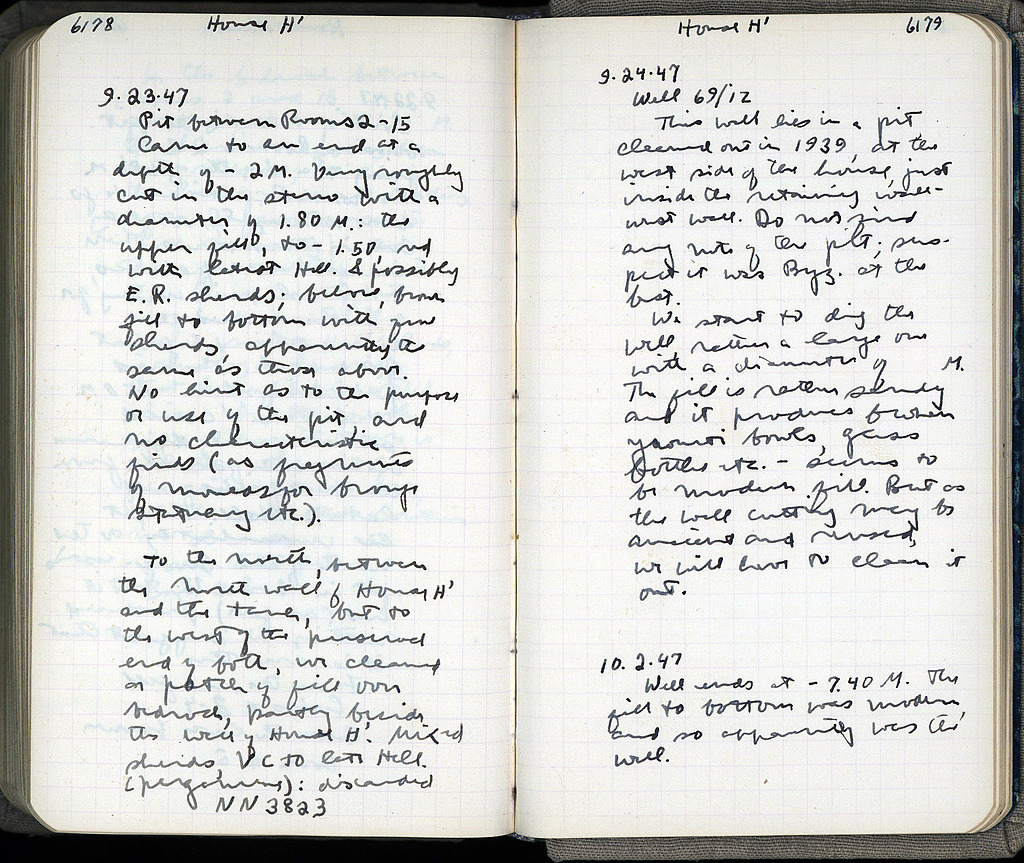 6178 House H'
9.23.47
Pit between Rooms 2-15
Came to an end at a
depth of - 2 M. Very roughly
cut in the stereo with a
diameter of 1.80 M.: the
upper fill, to - 1.50, red
with latest Hell. & possibly
E.R. sherds; below, brown
fill to bottom with few
sherds, apparently the
same as those above.
No hint as to the purpose
or use of the pit, and
no characteristic
finds (as fragments
of moulds for bronze
statuary etc.).
To the north, between
the north wall of House H'
and the , but to
the west of the preserved
end of both, we cleaned
a patch of fill over
bedrock, partly beside
the wall of House H'. Mixed
sherds, V C to late Hell.
(pergamene): discarded
NN 3823
House H' 6179
9.24.47
Well 69/12
This well lies in a pit
cleaned out in 1939, at the
west side of the house, just
inside the retaining wall-
west wall. Do not find
any note of the pit; sus-
pect it was Byz. at the
best.
We start to dig the
well, rather a large one
with a diameter of M.
The fill is rather sandy
and it produces broken
yaourti bowls, glass
bottles etc. - seems to
be modern fill. But as
the well cutting may be
ancient and reused,
we will have to clean it
out.
10.2.47
Well ends at - 7.40 M. The
fill to bottom was modern
and so apparently was the
well.